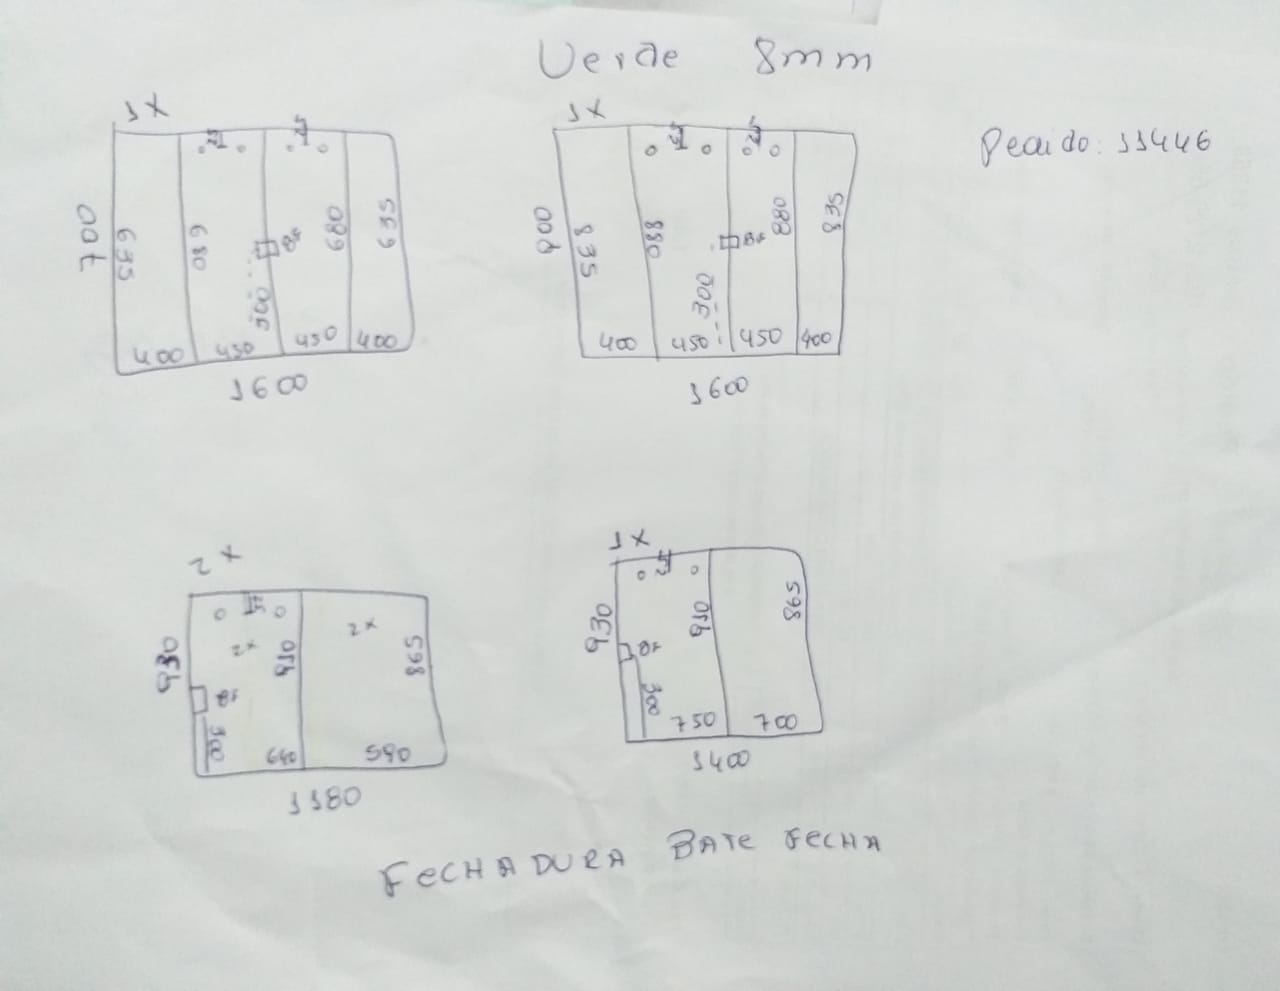 Verde 8mm
Pedido: 11446
1x
700
635
680
680
635
BF
300
400
450
450
400
1600
1x
900
835
880
880
835
BF
300
400
450
450
400
1600
2x
930
2x
910
2x
865
BF
300
640
590
1180
1x
930
910
865
BF
300
750
700
1400
FECHADURA BATE FECHA